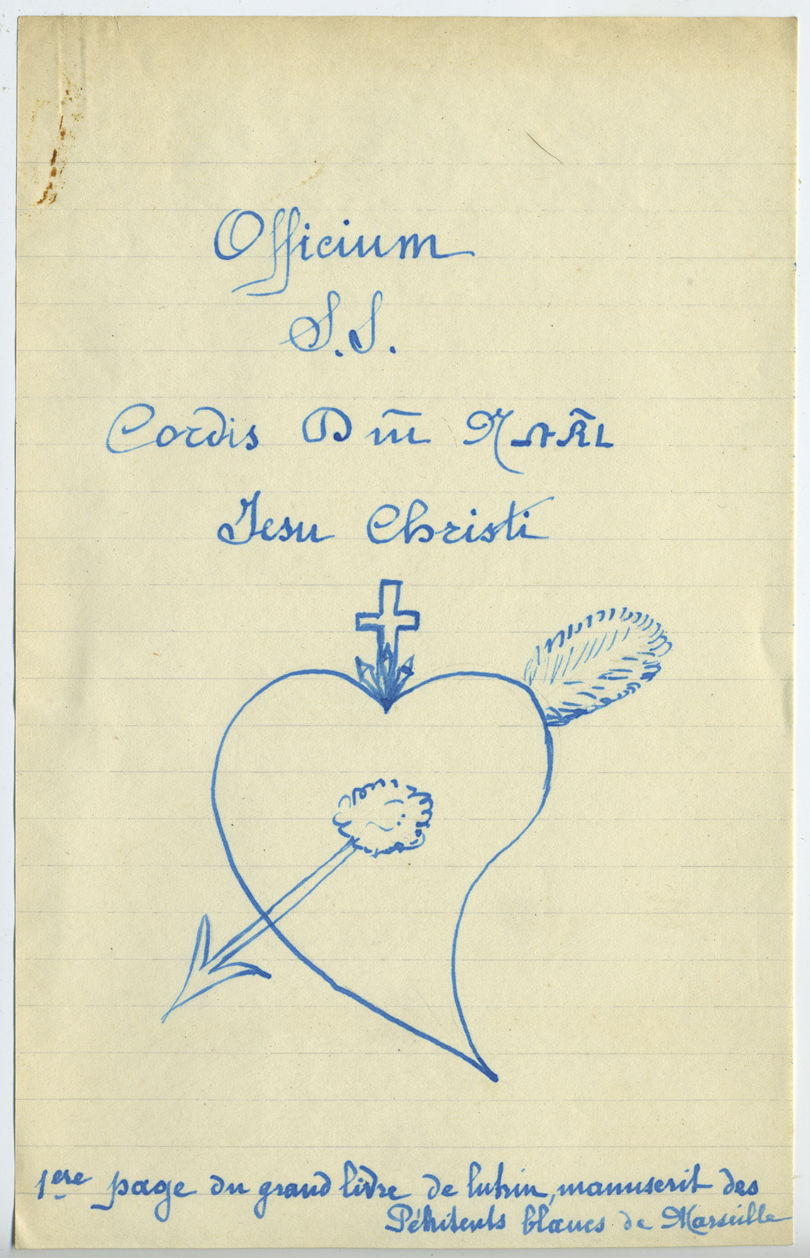 Officium
S.S.
Cordis Dm̅
Jesu Christi
1ere page du grand livre de lutrin, manuscrit des
Pénitents blancs de Marseille